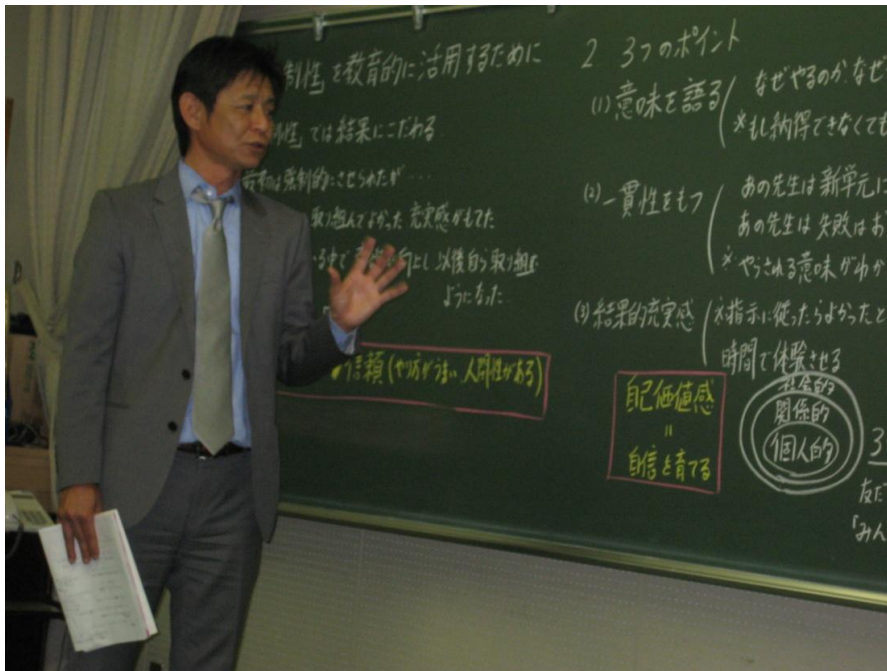 制性」を教育的に活用するために
性」では結果にこだわる
強制的にさせられたが・・・
取り組んでよかった 充実感がもてた
中で 向上し 以後自ら取り組む
ようになった
信頼(やり方がうまい、人間性がある)
2 3つのポイント
(1) 意味を語る
なぜやるのか なぜ
※もし納得できなくても
(2) 一貫性をもつ
あの先生は新単元に
あの先生は失敗はお
※やらされる意味がわか
(3) 結果的充実感
※指示に従ったらよかったと
時間で体験させる
自己価値感
=
自信を育てる
社会的
関係的
個人的
3
友だ
「みん